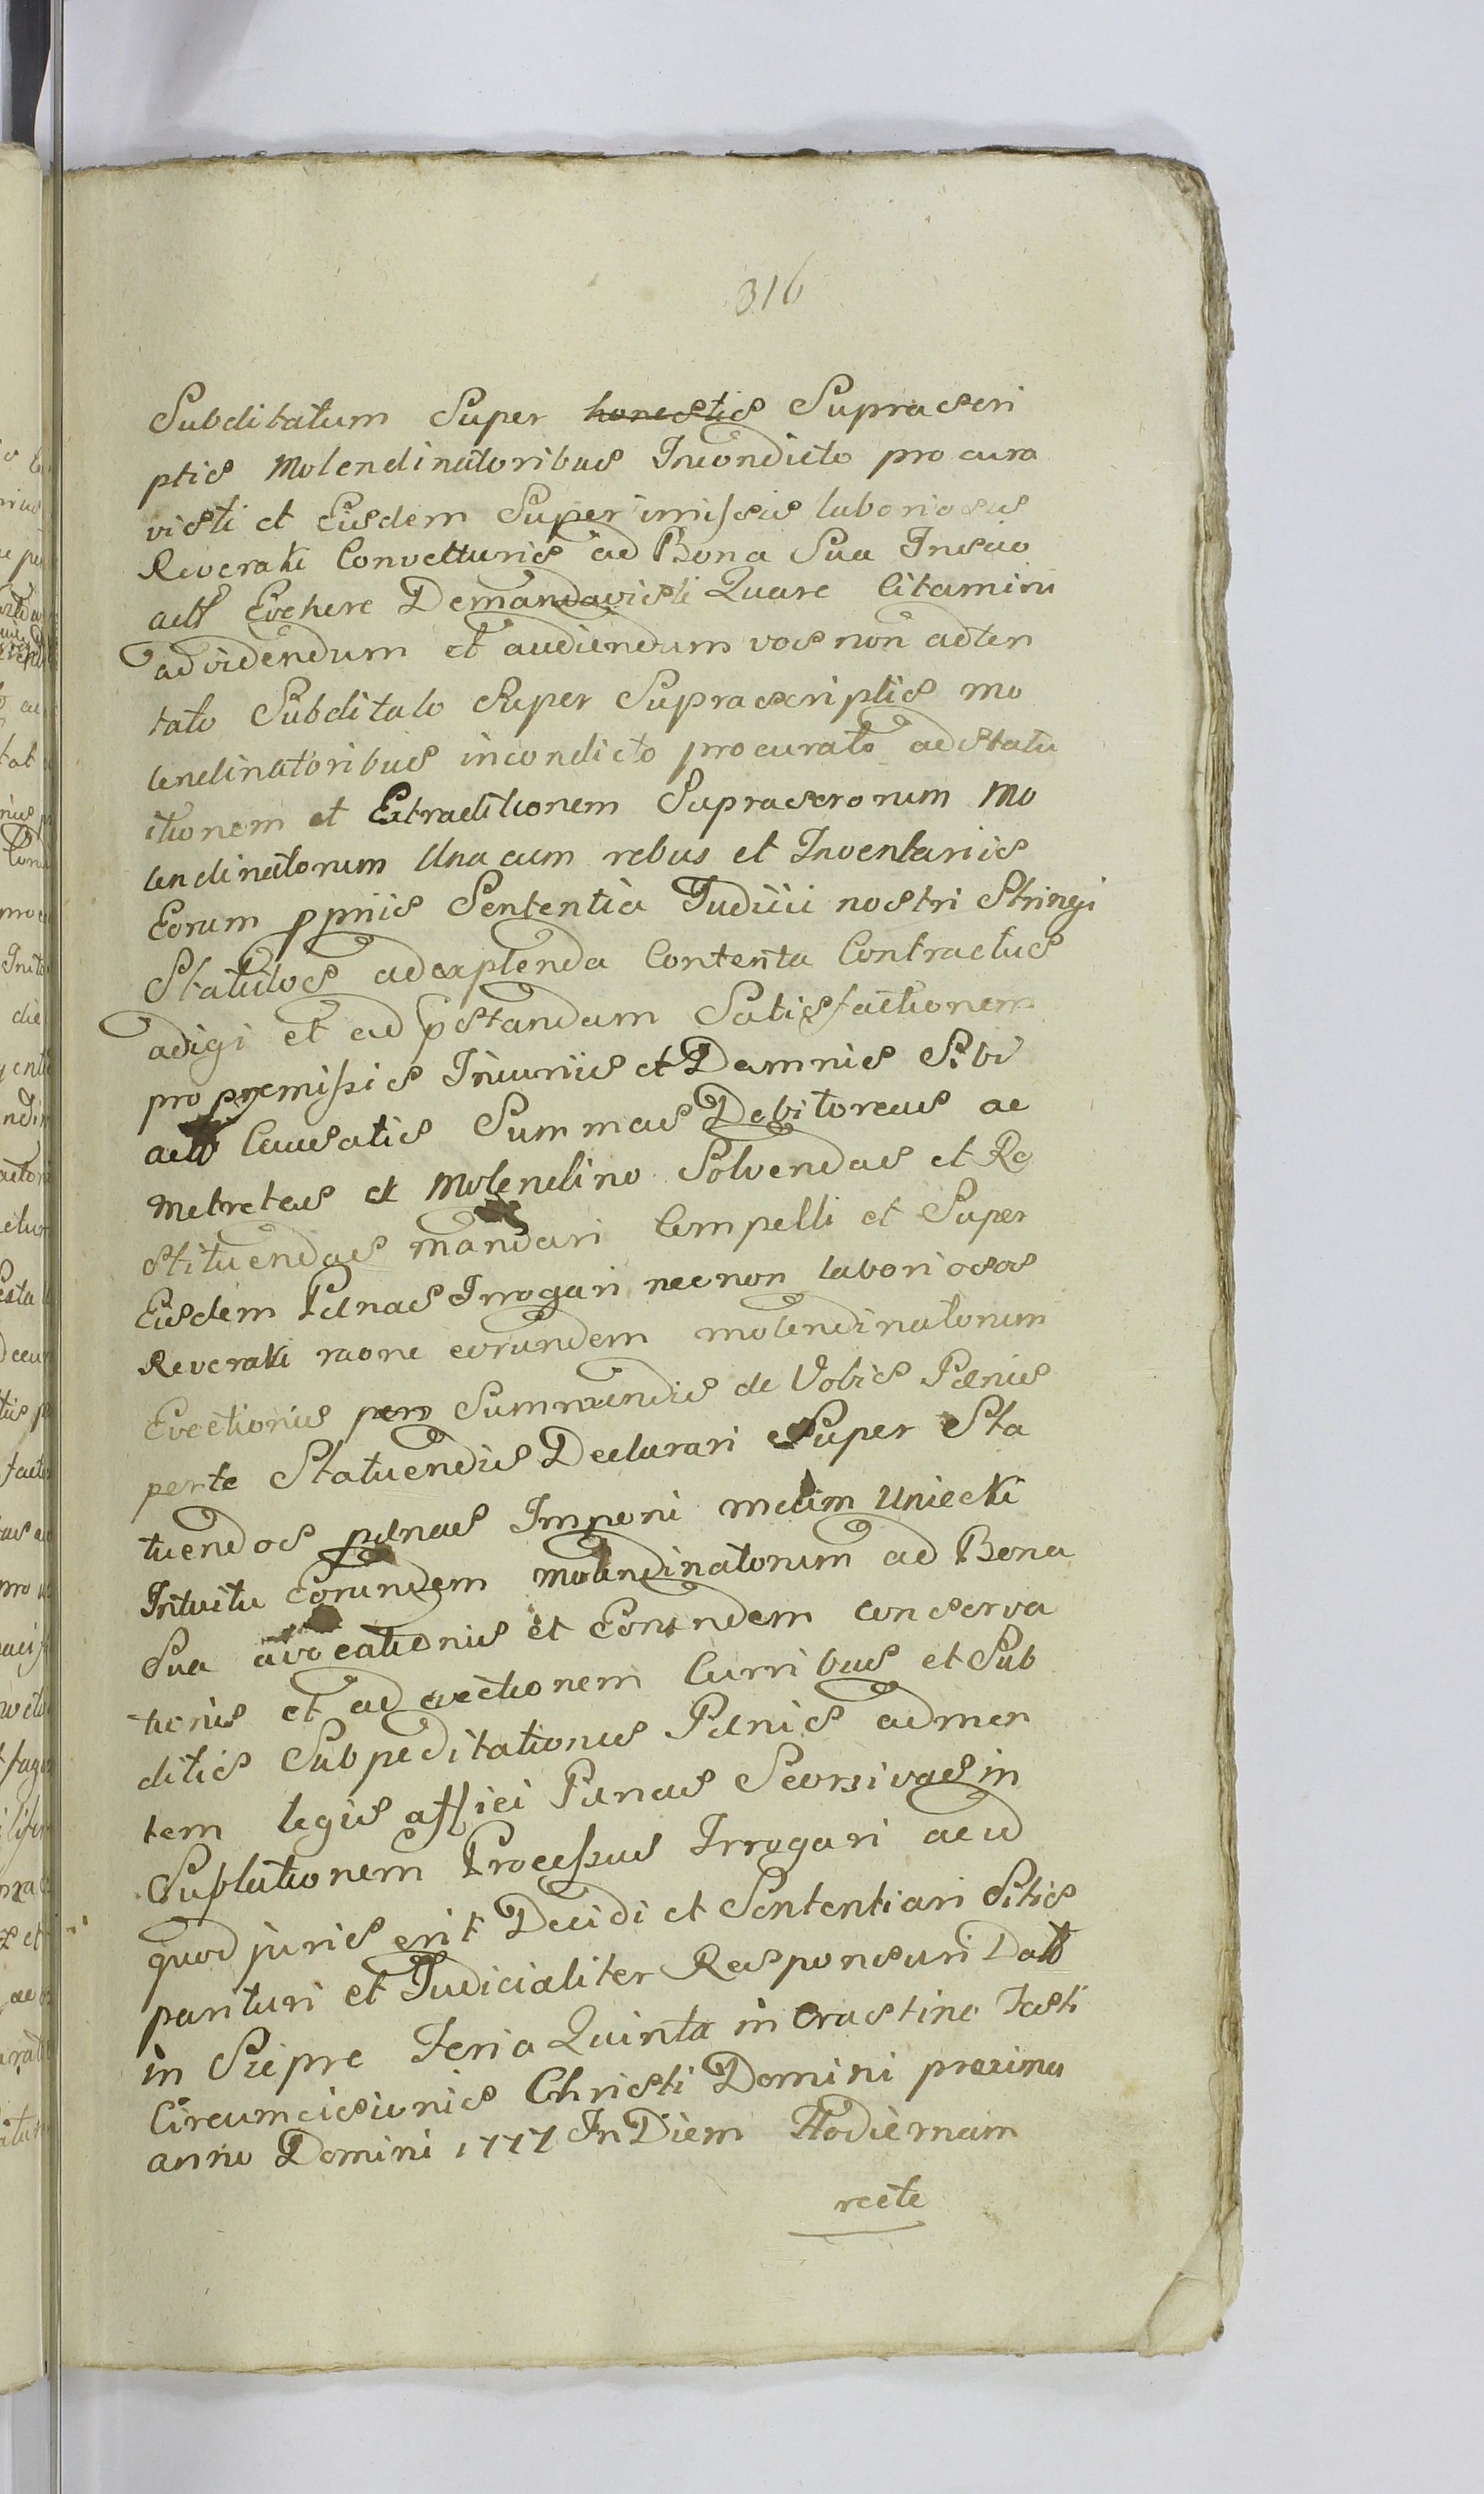 316
Subditatum Super honestis Supra scri
ptis Molendinatoribus Incondicto procura
visti et Eisdem Super imissis laboriosis
Reveraki Convecturis ad Bona Sua Inscio
actt Evehere Demandavisti Quare Citamini
ad videndum et audiendum vos non adten
tato Subditato Super Suprascriptis mo
lendinatoribus incondicto procurato ad statu
itionem et Extraditionem Suprascrorum Mo
lendinatorum Una cum rebus et Inventariis
Eorum ppriis Sententia Judicii nostri Stringi
Statutos ad explenda Contenta Contractus
adigi et ad pstandam Satisfactionem
pro premissis Iniuriis et Damnis Sibi
actt Causatis Summas Debitoreas ac
Metretas et Molendino Solvendas et Re
stituendas mandari Compelli et Super
Eisdem Pænas Irrogari nec non laboriosos
Reveraki raone eorundem molendinatorum
Evectionis Summendis de Vobis Pænis
per te Statuendis Declarari Super Sta
tuendos pænas Imponi Uniecki
Intuitu Eorundem molendinatorum ad Bona
Sua avocationis et Eorundem conserva
tionis et ad evectionem Curribus et Sub
ditis Subpeditationis Pænis ad men
tem legis affici Pænas Seorsivas in
Suplutionem Processus Irrogari ac id
quod juris erit Decidi et Sententiari Sitis
parituri et Judicialiter Responsuri Datt
in Sciepre Feria Quinta in Crastino Festi
Circumcisionis Christi Domini proxima
anno Domini 1777 In Diem Hodiernam
recte